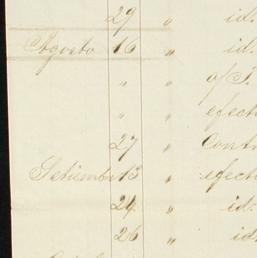 29 " id.
Agosto 16 " id.
" of I.
" efect
27 " Contr
Setiembre 13 " efect
24 " id.
26 " id.